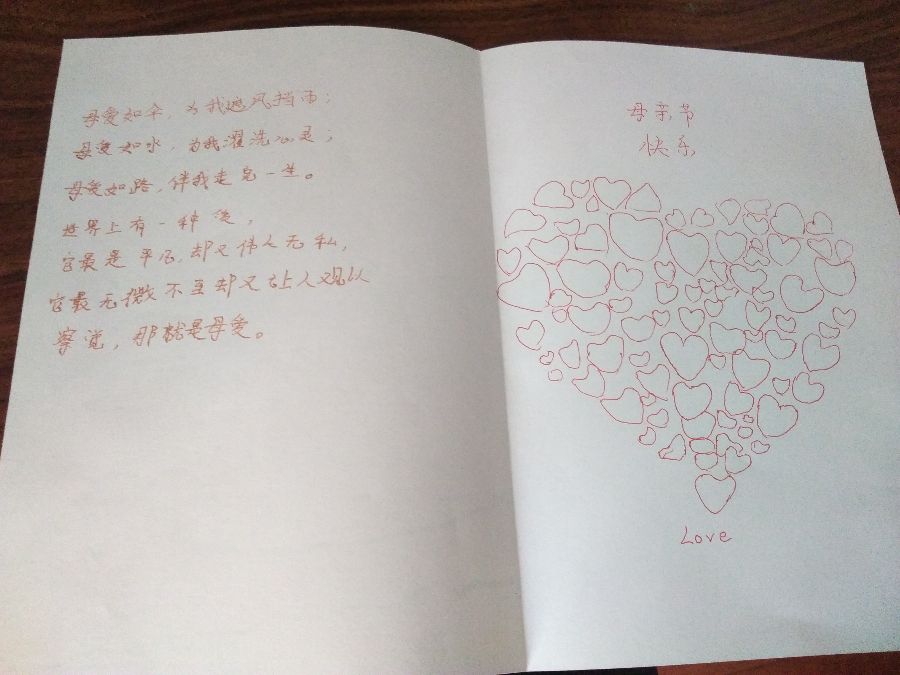 母爱如伞，为我遮风挡雨；
母爱如水，为我濯洗心灵；
母爱如路，伴我走完一生。
世界上有一种爱，
它最是平凡，却又伟大无私，
它最无微不至却又让人难以
察觉，那就是母爱。
母亲节
快乐
Love